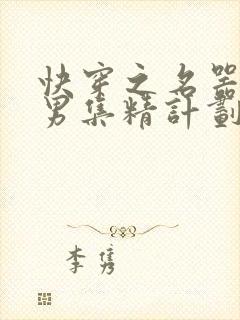 快穿之名器
男集精計劃
李雋